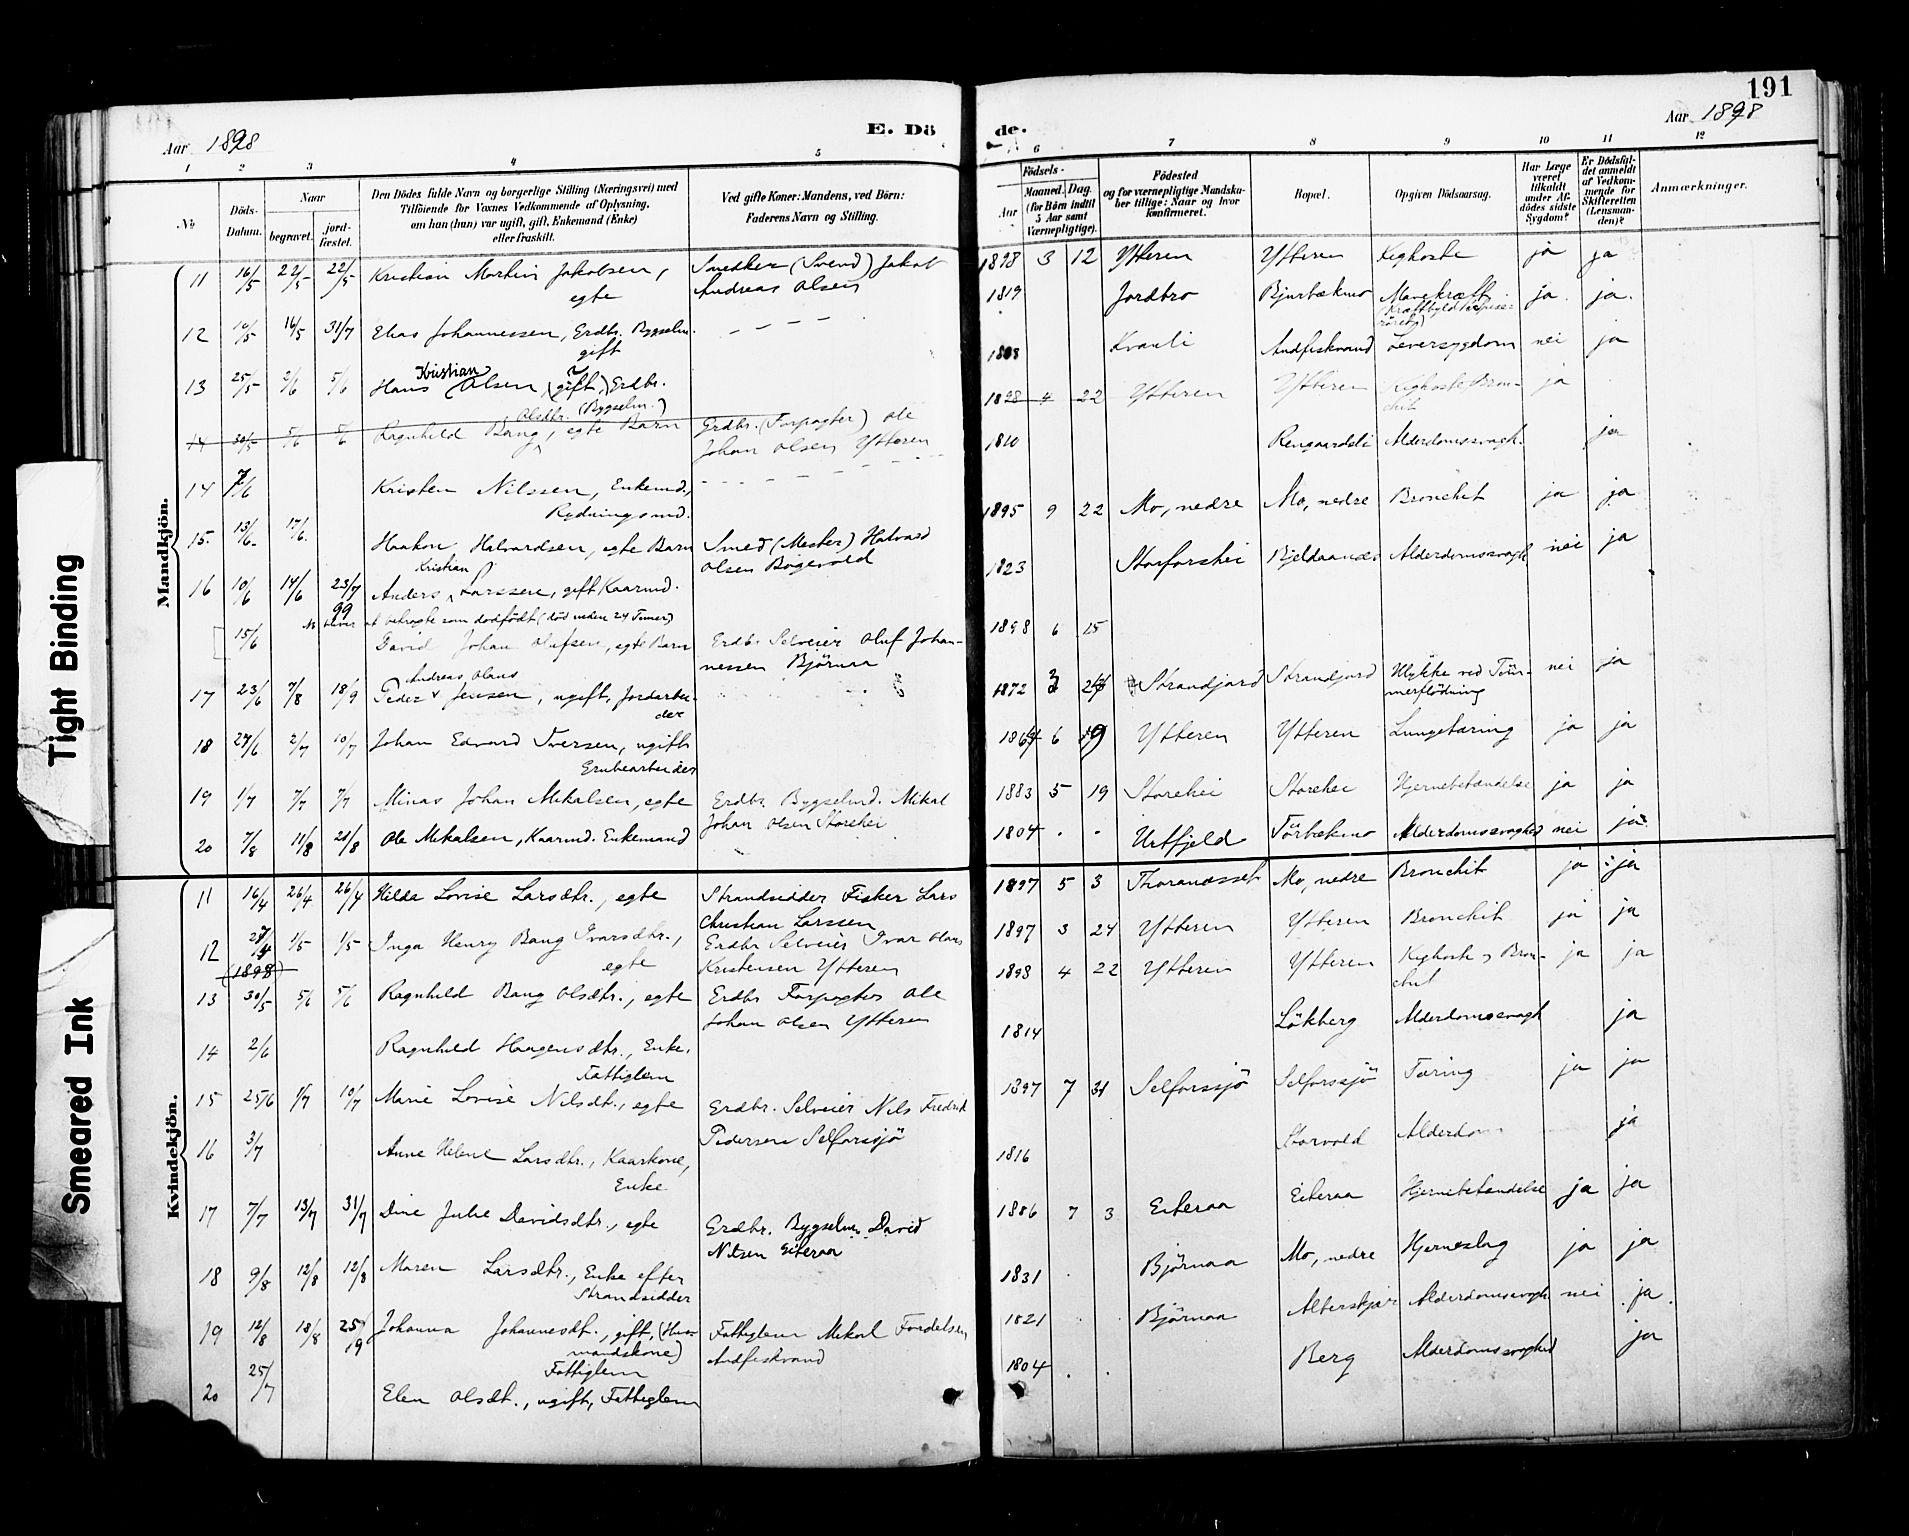 191
Aar 1898
E. Dö
de.
Aar 1898
1 2 3 4 5
6 7 8 9 10 11 12
No
Döds-Datum.
Naar
begravet.
jord-fæstet.
Den Dödes fulde Navn og borgerlige Stilling (Næringsvei) med
Tilföiende for Voxnes Vedkommende af Oplysning,
om han (hun) var ugift, gift, Enkemand (Enke)
eller fraskilt.
Ved gifte Koner: Mandens, ved Börn:
Faderens Navn og Stilling.
Födsels-
Aar
Maaned. Dag.
(for Börn indtil
5 Aar samt
Værnepligtige).
Födested
og for værnepligtige Mandska-
ber tillige: Naar og hvor
konfirmeret.
Bopæl.
Opgiven Dödsaarsag.
Har Læge
været
tilkaldt
under Af-
dödes sidste
Sygdom?
Er Dödsfal-
det anmeldt
af Vedkom-
mende for
Skifteretten
(Lensman-
den)?
Anmærkninger.
Mandkjön.
11 16/5 22/5 22/5 Kristian Martin Jakobsen, Smedker (Svend) Jakob 1898 3 12 Ytteren Ytteren Kighoste ja ja
egte Andreas Olsen
12 10/5 16/5 31/7 Elias Johannessen, Erdbr. Bygselm. - - - - 1819 Jordbro Bjurbækmo Mavekræft ja. ja.
gift
Kristian
13 25/5 3/6 5/6 Hans Olsen (gift,) Erdbr. Kvanli Andfiskvand Leversygdom nei ja
(Bygselm.)
Olsdtr.
14 30/5 5/6 5/6 Ragnhild Bang, egte Barn Erdbr. (Forpagter) Ole 1898 4 22 Ytteren Ytteren Kighoste Bron- ja
Johan Olsen Ytteren chit
14 7/6 Kristen Nilssen, Enkemd., - - - - - 1810 Rengaardsli Alderdomssvagh. ja
Rydningsmd.
15. 13/6 17/6. Haakon Halvardsen, egte Barn Smed (Mester) Halvard 1895 9 22 Mo, nedre Mo, nedre Bronchit ja ja
Olsen Bogevold
Kristian
16 10/6 14/6 23/7 Anders Larssen, gift Kaarmd. 1823 Storforshei Bjeldaanes Alderdomssvagh nei ja
99
at betragte som dödfödt (död inden 24 Timer)
15/6 David Johan Olufsen, egte Barn Erdbr Selveier Oluf Johan- 1898 6 15
nessen Björnaa
Andreas Olaus
17 23/6 7/8 18/9 Peder Jensen, ugift, Jordarbei- 1872 Strandjord Strandjord Ulykke ved Töm- nei ja
der merflödning
18 27/6 2/7 10/7 Johan Edvard Iversen, ugift 1864 6 19 Ytteren Ytteren Lungetæring ja ja
Grubearbeider
19 1/7 7/7 7/7 Minas Johan Mikalsen, egte Erdbr Bygselmd. Mikal 1883 5 19 Storehei Storehei Hjernebetændelse ja ja
Johan Olsen Storehei
20 7/8 11/8 21/8 Ole Mikalsen, Kaarmd. Enkemand 1804 . - Urtfjeld Törbækmo Alderdomssvaghed nei ja
Kvindekjön.
11 16/4 26/4 26/4 Hilda Lovise Larsdtr., egte Strandsidder Fisker Lars 1897 5 3 Thoranæsset Mo, nedre Bronchit ja ja
Christian Larssen
12 1/5 1/5 Inga Henry Bang Ivarsdtr., Erdbr Selveier Ivar Olaus 1897 3 24 Ytteren Ytteren Bronchit ja ja
(1898) egte Kristensen Ytteren
13 30/5 5/6 5/6 Ragnhild Bang Olsdtr., egte Erdbr Forpagter Ole 1898 4 22 Ytteren Ytteren Kighoste, Bron- ja ja
Johan Olsen Ytteren chit
14 2/6 Ragnhild Haagensdtr., Enke. 1814 Lökberg Alderdomssvagh ja
Fattiglem
15 25/6 1/7 10/7 Marie Lovise Nilsdt., egte Erdbr. Selveier Nils Fredrik 1897 7 31 Selforssjö Selforssjö Tæring ja ja
Pedersen Selforssjö
16 3/7 Anne Helene Larsdtr., Kaarkone, 1816 Storvold Alderdom ja
Enke
17 7/7 13/7 31/7 Dine Julie Davidsdtr., egte Erdbr. Bygselm. David 1886 7 3 Eiteraa Eiteraa Hjernebetændelse ja ja
Nilsen Eiteraa
18 9/8 12/8 12/8 Maren Larsdtr., Enke efter 1831 Björnaa Mo, nedre Hjerneslag ja ja
Strandsidder
19 12/8 18/8 Johanna Johannesdt., gift, (Hus- Fattiglem Mikal 1821 Björnaa Alterskjær Alderdomssvagh nei ja.
mandskone) Andfiskvand
Fattiglem
20 25/7 Elen Olsdt., ugift, Fattiglem 1804 . . Berg Alderdomssvaghed ja
Tight Binding
Smeared Ink